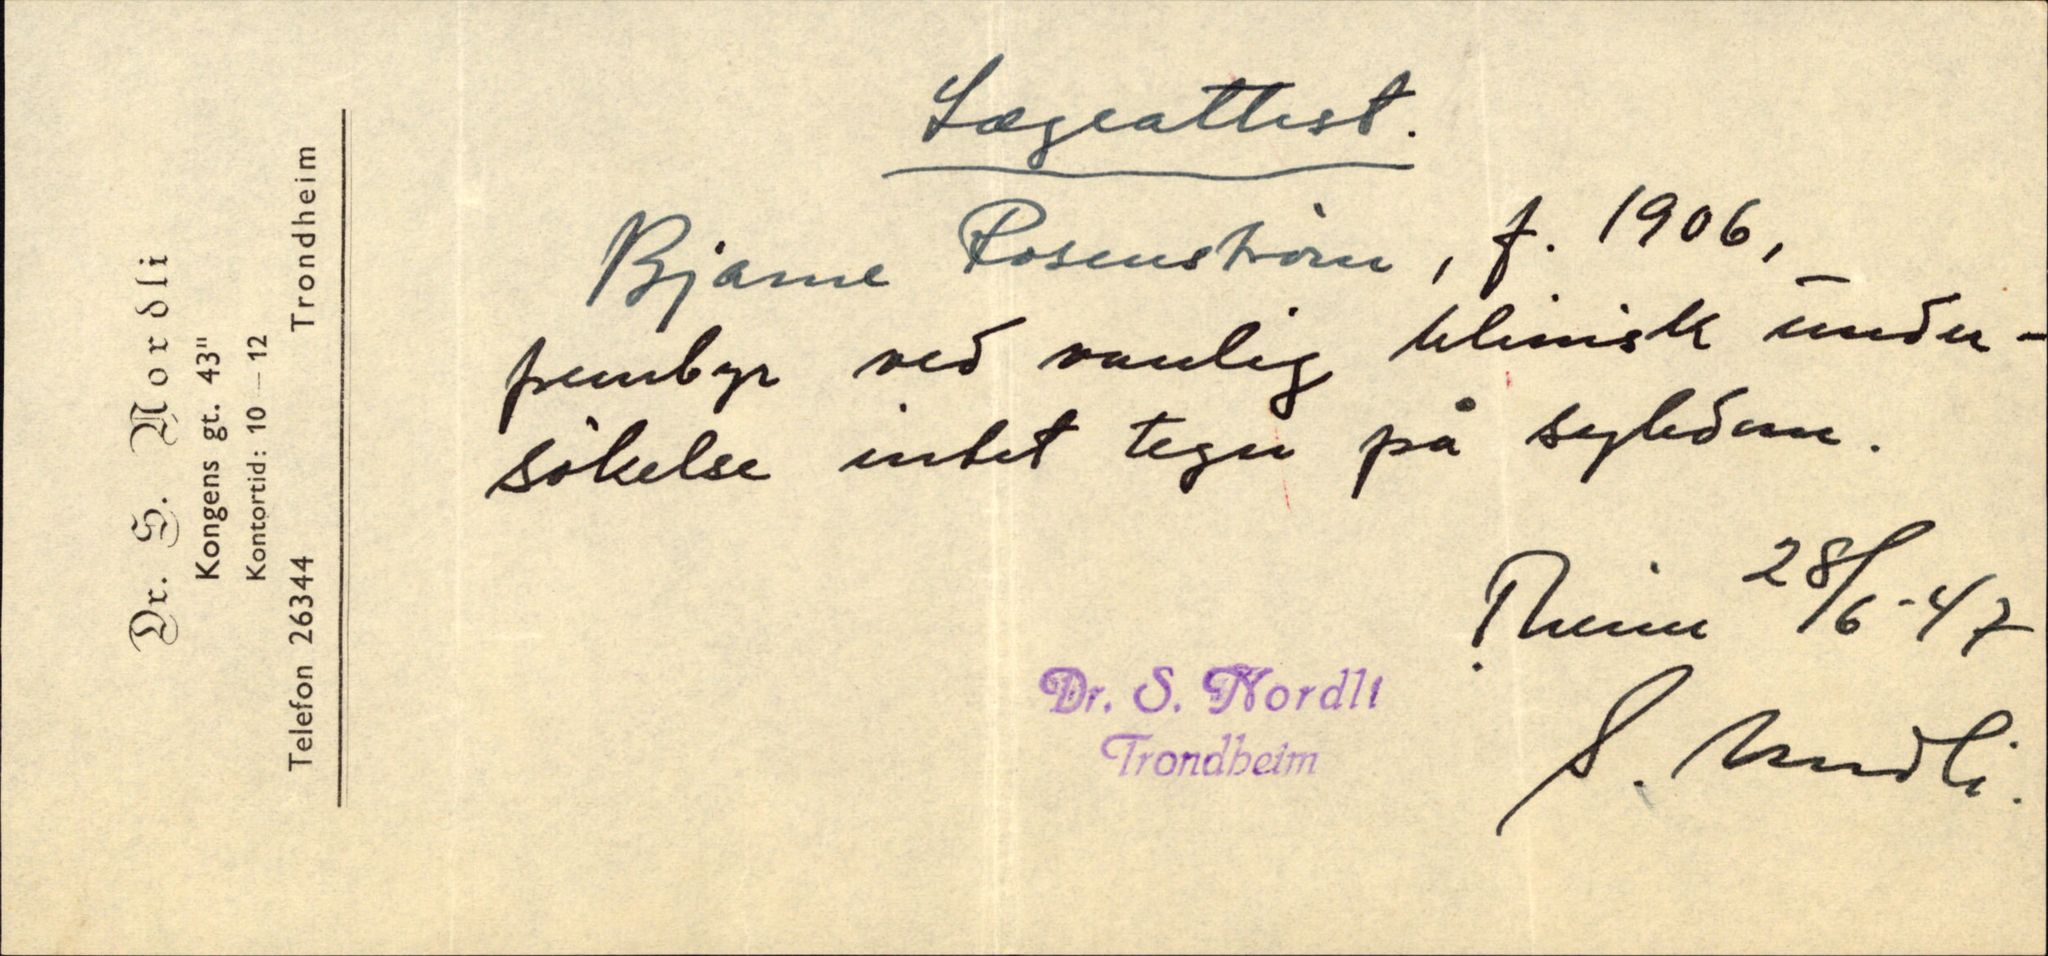 Dr. S. Nordli
Kongens gt. 43"
Kontortid: 10—12
Telefon 26344 Trondheim
Lægeattest.
Bjarne Rosenstrøm, f. 1906,
frembyr ved vanlig klinisk under-
søkelse intet tegn på sykdom.
Theim 28/6-47
Dr. S. Nordli
Trondheim
S. Nordli.